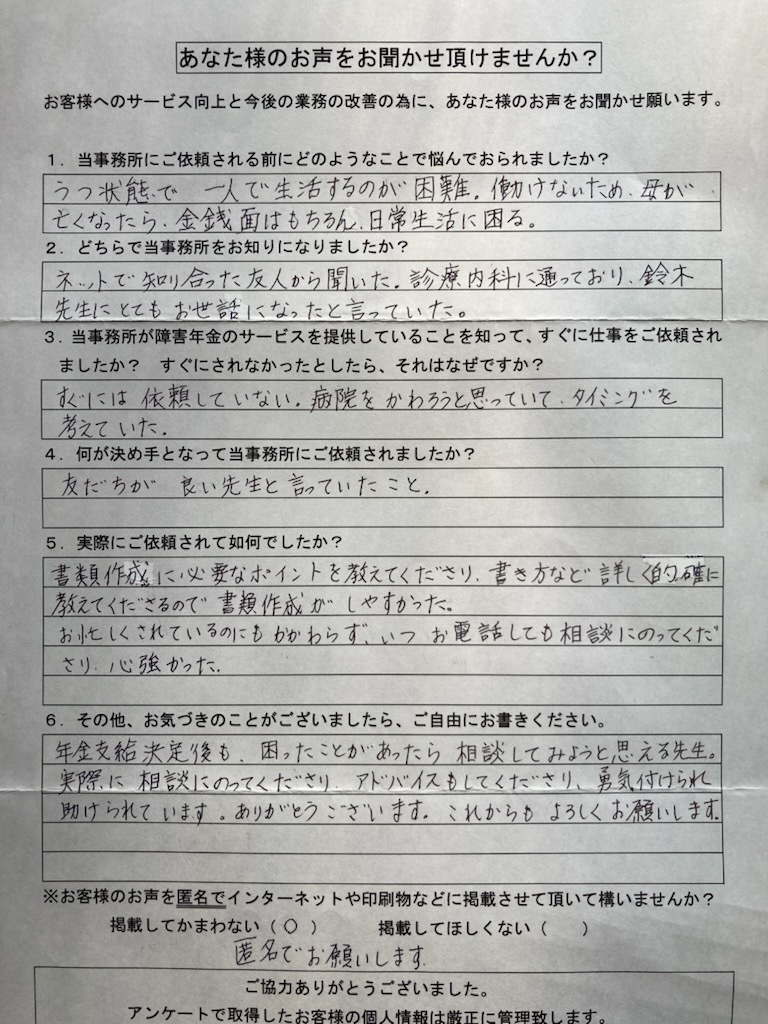 あなた様のお声をお聞かせ頂けませんか？
お客様へのサービス向上と今後の業務の改善の為に、あなた様のお声をお聞かせ願います。
１．当事務所にご依頼される前にどのようなことで悩んでおられましたか？
うつ状態で 一人で生活するのが 困難。働けないため、母が
亡くなったら、金銭面はもちろん、日常生活に困る。
２．どちらで当事務所をお知りになりましたか？
ネットで知り合った友人から聞いた。診療内科に通っており、鈴木
先生にとてもお世話になったと言っていた。
３．当事務所が障害年金のサービスを提供していることを知って、すぐに仕事をご依頼され
ましたか？　すぐにされなかったとしたら、それはなぜですか？
すぐには 依頼していない。病院を かわろうと思っていて、タイミングを
考えていた。
４．何が決め手となって当事務所にご依頼されましたか？
友だちが 良い先生と言っていたこと。
５．実際にご依頼されて如何でしたか？
書類作成に必要なポイントを教えてくださり、書き方など 詳しく的確に
教えてくださるので 書類作成が しやすかった。
お忙しくされているのにもかかわらず、いつ お電話しても相談にのってくだ
さり、心強かった。
６．その他、お気づきのことがございましたら、ご自由にお書きください。
年金支給決定後も、困ったことがあったら 相談してみようと思える先生。
実際に 相談にのってくださり、アドバイスもしてくださり、勇気付けられ
助けられています。ありがとうございます。これからも よろしくお願いします。
※お客様のお声を匿名でインターネットや印刷物などに掲載させて頂いて構いませんか？
掲載してかまわない（ ○ ）　　掲載してほしくない（　　）
匿名でお願いします。
ご協力ありがとうございました。
アンケートで取得したお客様の個人情報は厳正に管理致します。